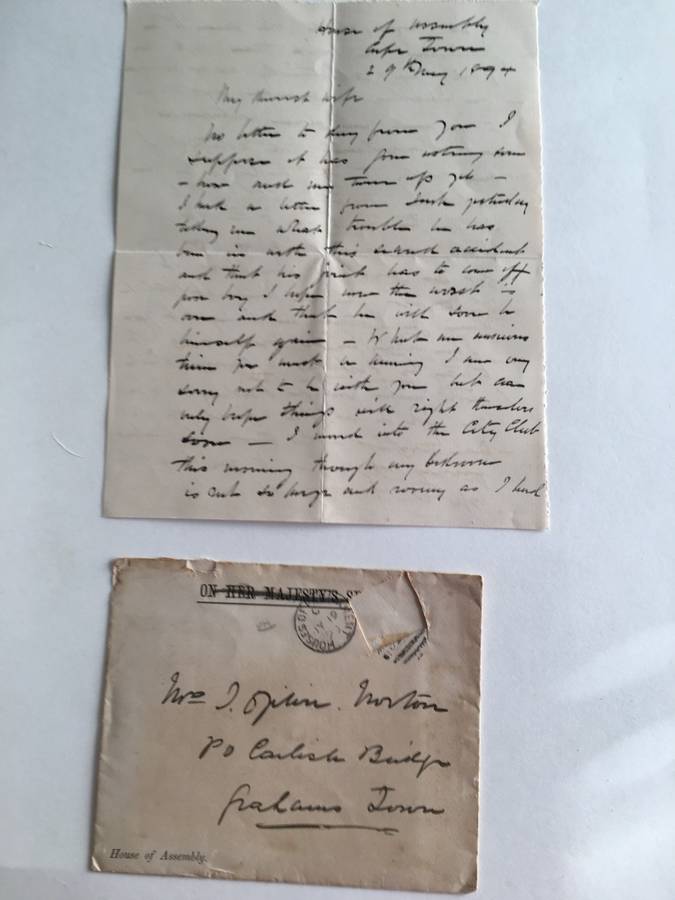 House of Assembly
Cape Town
29th May 1894
My dearest wife
No letter to day from you I
suppose it has gone
now and may turn up yet -
I had a letter from yesterday
telling me what trouble he has
been in with this accident
and that his joint has to come off
poor boy I hope now the worst is
over and that he will soon be
himself again - What an anxious
time you must be having I am very
sorry not to be with you but can
only hope things will right themselves
soon - I moved into the City Club
this morning though my bedroom
is not so large and roomy as I had
ON HER MAJESTY'S
HOUSES OF
Mrs Norton
PO Carlisle Bridge
Grahams Town
House of Assembly.